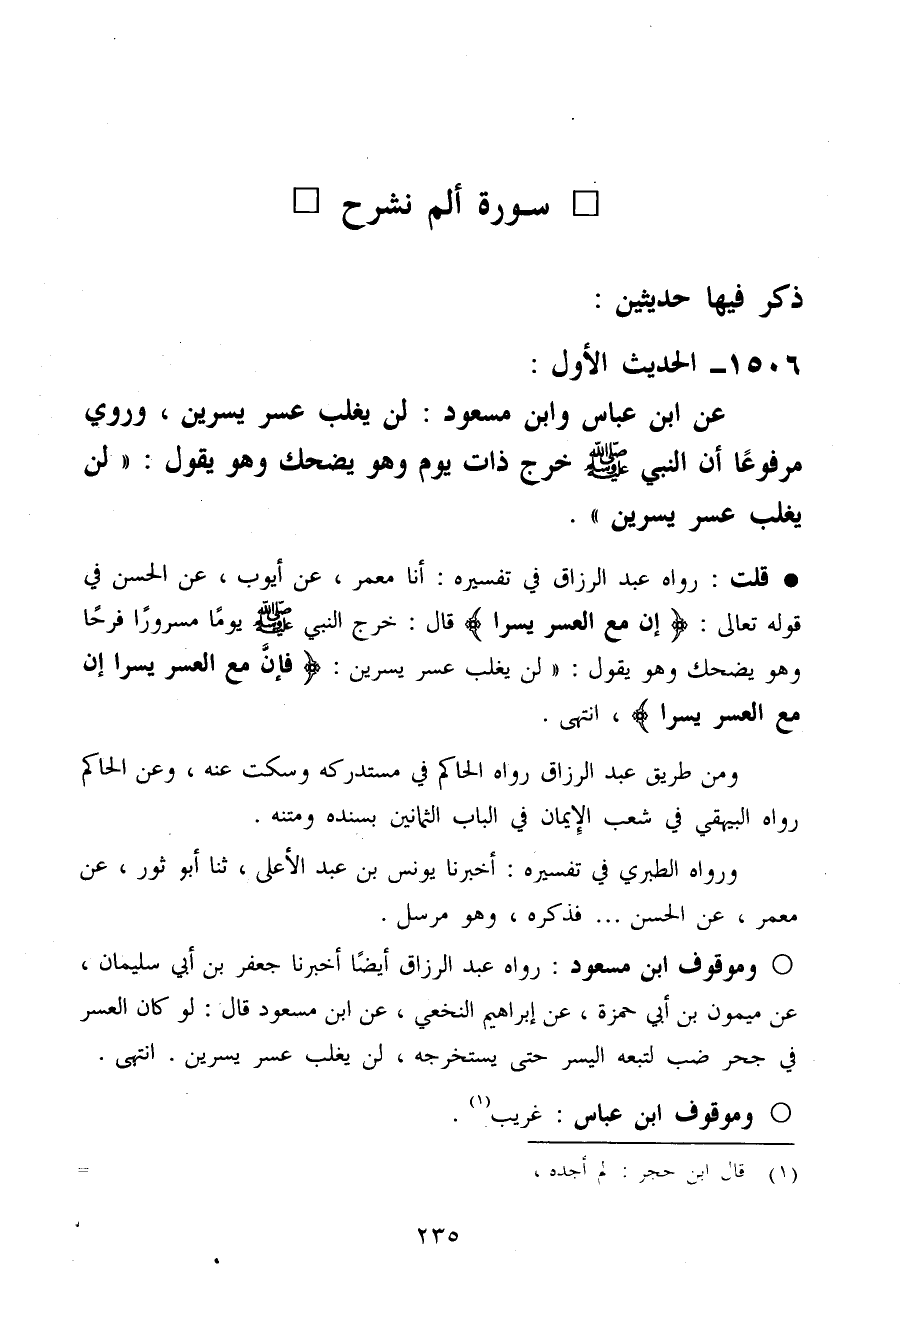 □ سورة ألم نشرح □
ذكر فيها حديثين :
١٥٠٦ـ الحديث الأول :
عن ابن عباس وابن مسعود : لن يغلب عسر يسرين ، وروي
مرفوعًا أن النبي ﷺ خرج ذات يوم وهو يضحك وهو يقول : « لن
يغلب عسر يسرين » .
● قلت : رواه عبد الرزاق في تفسيره : أنا معمر ، عن أيوب ، عن الحسن في
قوله تعالى : ﴿ إن مع العسر يسرا ﴾ قال : خرج النبي ﷺ يومًا مسرورًا فرحًا
وهو يضحك وهو يقول : « لن يغلب عسر يسرين : ﴿ فإنَّ مع العسر يسرا إن
مع العسر يسرا ﴾ ، انتهى .
ومن طريق عبد الرزاق رواه الحاكم في مستدركه وسكت عنه ، وعن الحاكم
رواه البيهقي في شعب الإيمان في الباب الثمانين بسنده ومتنه .
ورواه الطبري في تفسيره : أخبرنا يونس بن عبد الأعلى ، ثنا أبو ثور ، عن
معمر ، عن الحسن ... فذكره ، وهو مرسل .
○ وموقوف ابن مسعود : رواه عبد الرزاق أيضًا أخبرنا جعفر بن أبي سليمان ،
عن ميمون بن أبي حمزة ، عن إبراهيم النخعي ، عن ابن مسعود قال : لو كان العسر
في جحر ضب لتبعه اليسر حتى يستخرجه ، لن يغلب عسر يسرين . انتهى .
○ وموقوف ابن عباس : غريب(١) .
(١) قال ابن حجر : لم أجده ، =
٢٣٥